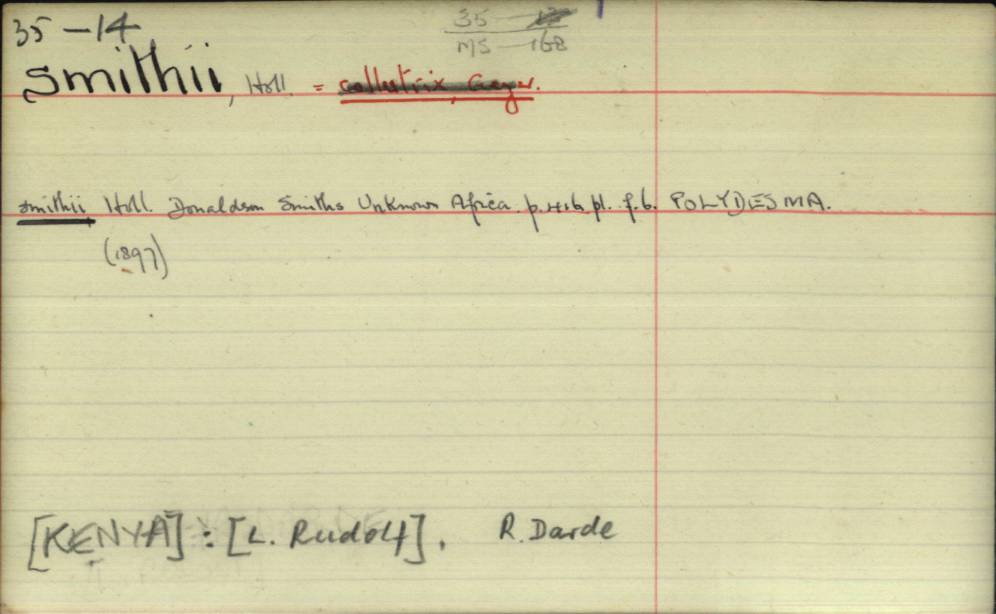 35-14
35
MS - 168
smithii, Holl. = collutrix, Geyer.
smithii Holl. Donaldson Smiths Unknown Africa. p. 416. pl. f.6. POLYDESMA.
(1897)
[KENYA] : [L. Rudolf]. R. Darde